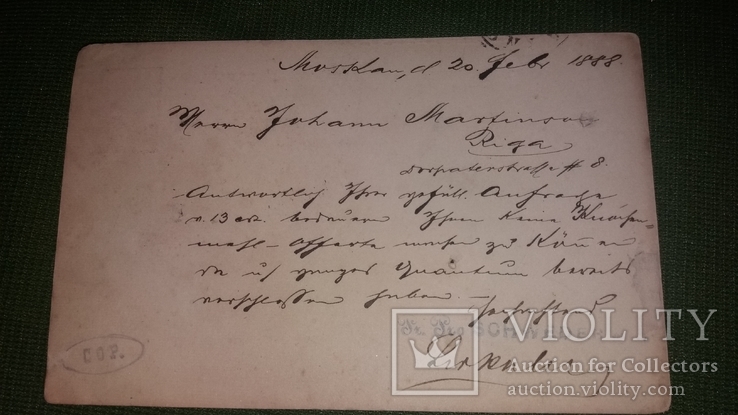 Moskau, d 20. Febr 1888.
Herrn Johann Martinson
Riga
Dorpaterstrasse # 8.
Antwortlich Ihrer gefäll. Anfrage
v. 13 cr. bedauern Ihnen keine Knochen-
mehl-Offerte machen zu können
da ganzes Quantum bereits
verschlossen haben. —
COP.
VIOLITY
Auction for Collectors
auction.violity.com